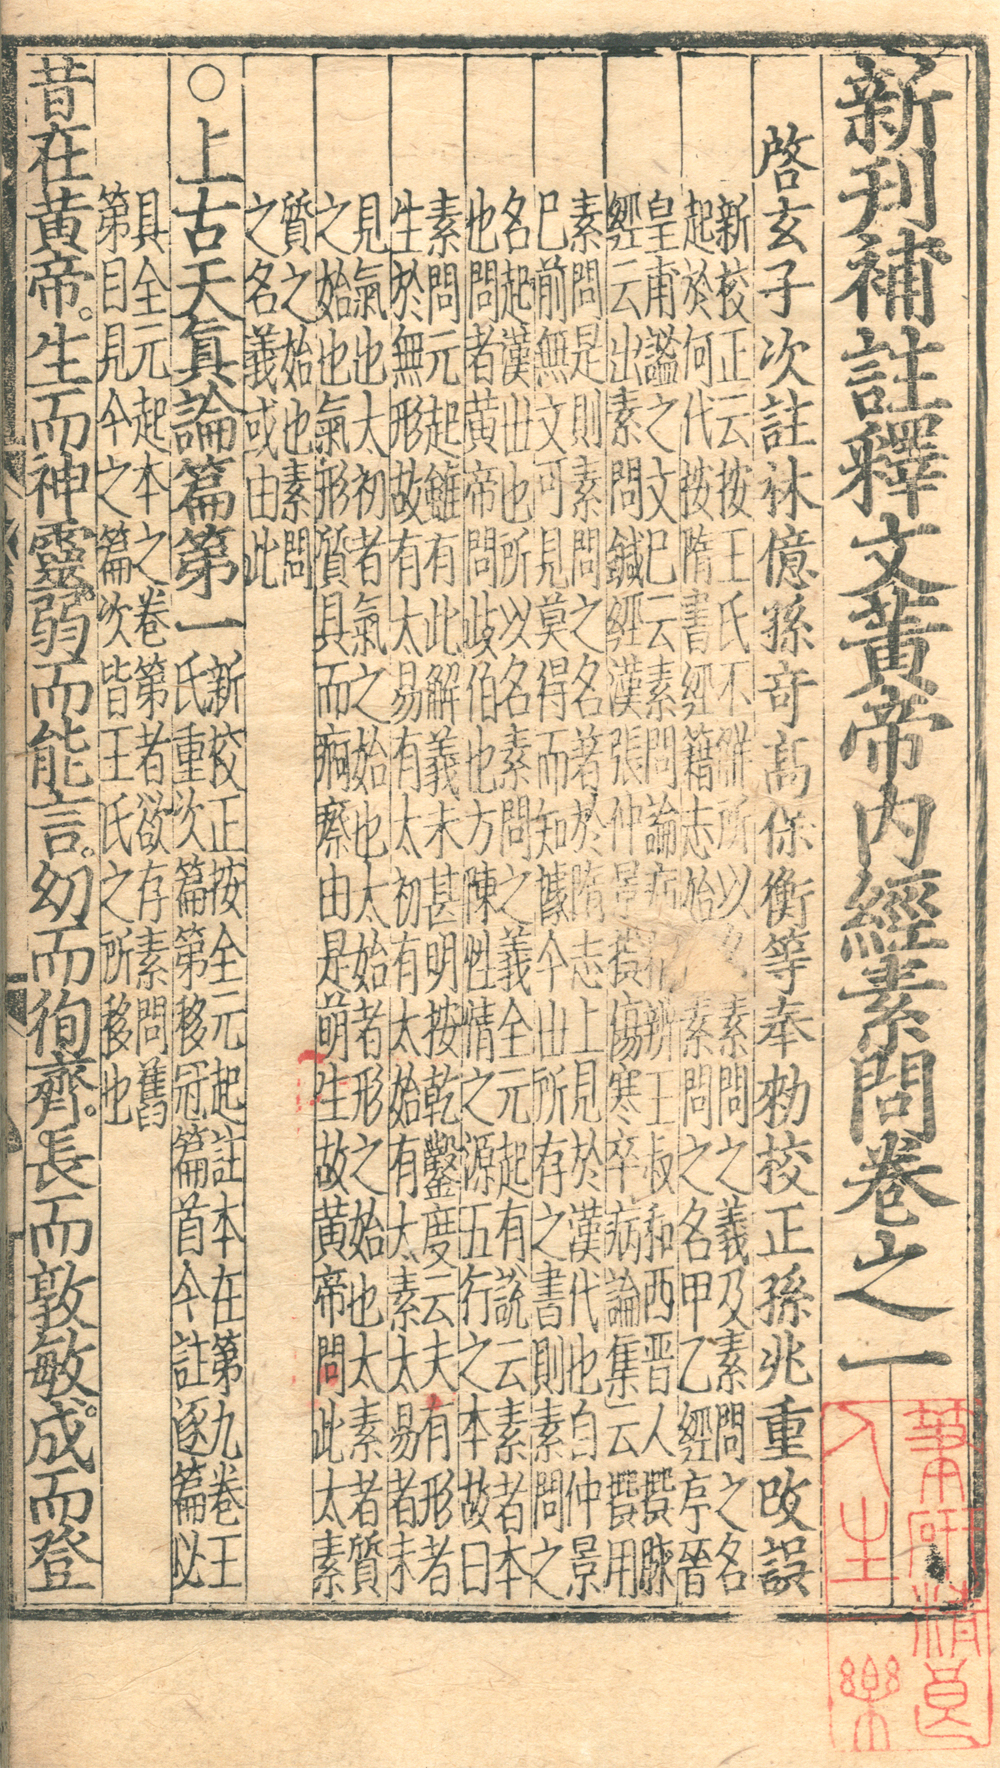 新刊補註釋文黃帝内經素問卷之一
啓玄子次註林億孫奇高保衡等奉勅校正孫兆重改誤
新校正云按王氏不解所以素問之義及素問之名
起於何代按隋書經籍志始素問之名甲乙經序晉
皇甫謐之文已云素問論病辨王叔和西晉人撰脉
經云出素問鍼經漢張仲景撰傷寒卒病論集云撰用
素問是則素問之名著於隋志上見於漢代也自仲景
已前無文可見莫得而知據今世所存之書則素問之
名起漢世也所以名素問之義全元起有説云素者本
也問者黃帝問歧伯也方陳性情之源五行之本故曰
素問元起雖有此解義未甚明按乾鑿度云夫有形者
生於無形故有太易有太初有太始有太素太易者未
見氣也太初者氣之始也太始者形之始也太素者質
之始也氣形質具而痾瘵由是萌生故黃帝問此太素
質之始也素問
之名義或由此
○上古天真論篇第一
新校正按全元起註本在第九卷王
氏重次篇第移冠篇首今註逐篇必
具全元起本之卷第者欲存素問舊
第目見今之篇次皆王氏之所移也
昔在黃帝。生而神靈。弱而能言。幼而徇齊。長而敦敏。成而登
筆研精良
人生一樂